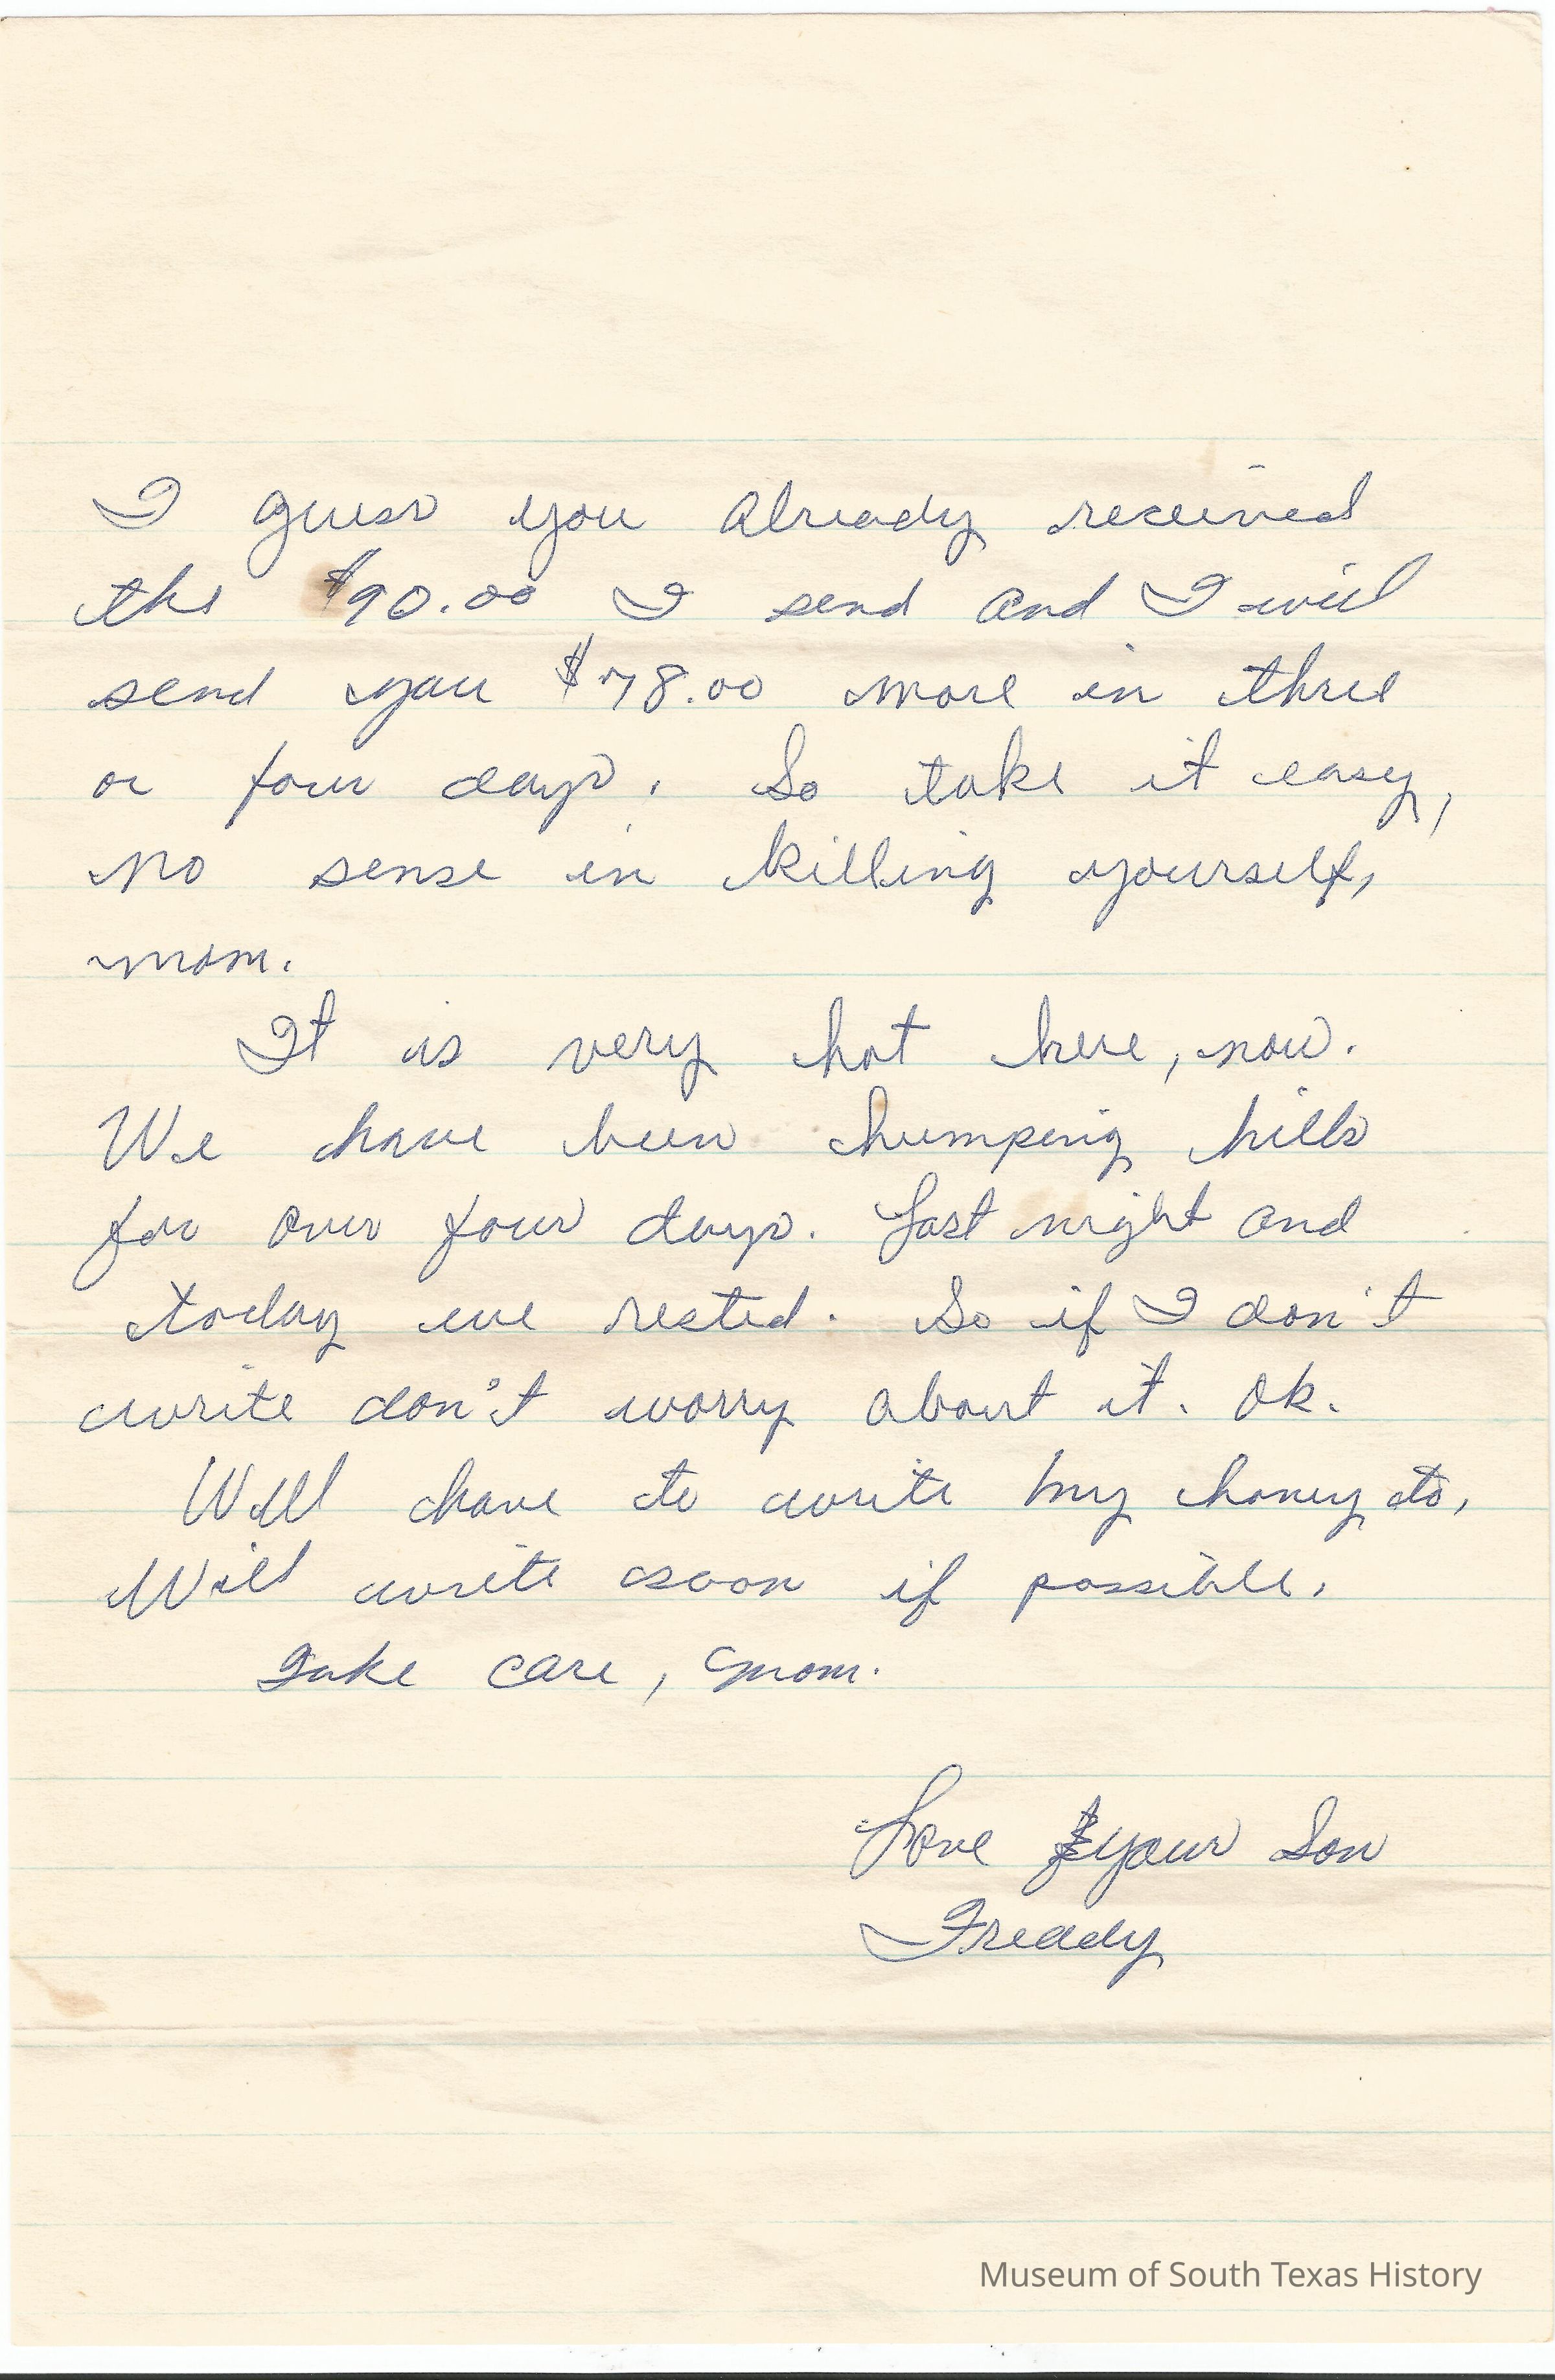 I guess you already received
the $90.00 I send and I will
send you $78.00 more in three
or four days. So take it easy,
no sense in killing yourself,
mom.
It is very hot here, now.
We have been humping hills
for over four days. Last night and
today we rested. So if I don't
write don't worry about it. Ok.
Will have to write my honey to,
Will write soon if possible.
Take care, mom.
Love your Son
Freddy
Museum of South Texas History